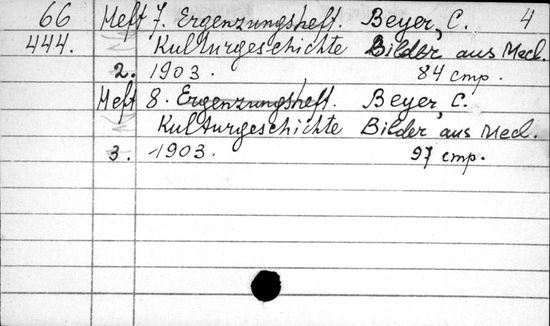 66 Heft 7. Ergenzungsheft. Beyer, C. 4
444. Kulturgeschichte Bilder aus Mecl.
2. 1903. 84 cmp.
Heft 8. Ergenzungsheft. Beyer, C.
Kulturgeschichte Bilder aus Mecl.
3. 1903. 97 cmp.